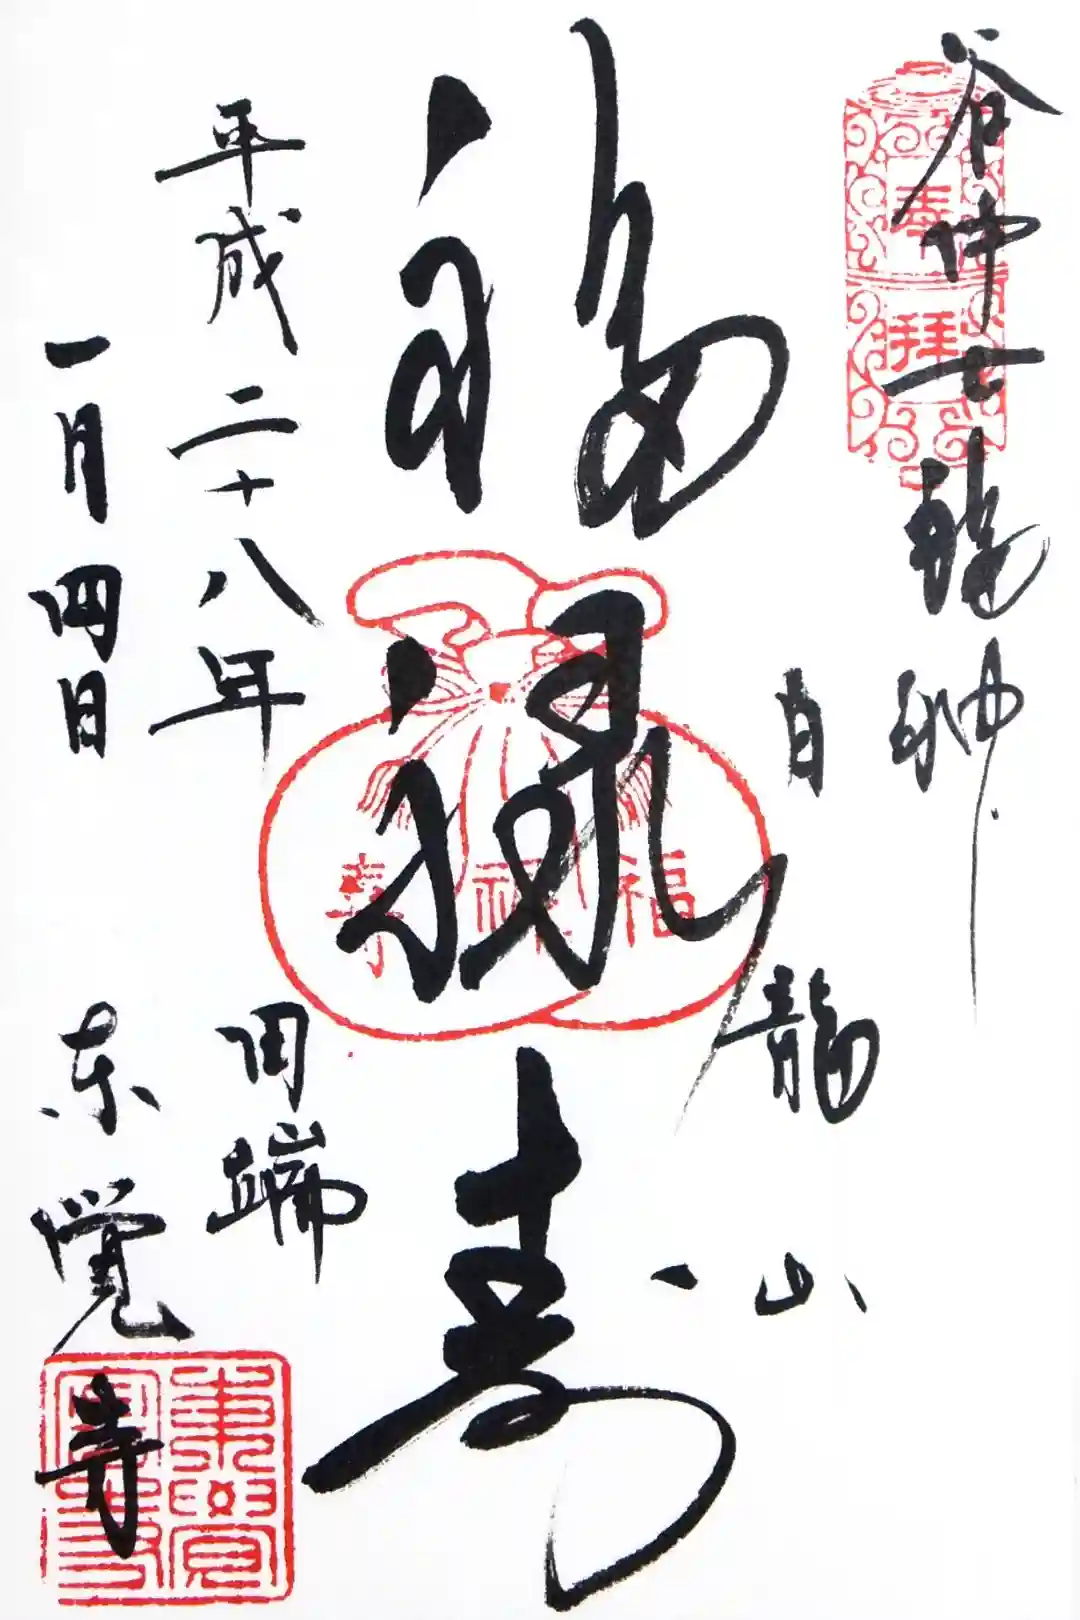 谷中七福神
奉拝
白龍山
福禄寿
福禄寿
平成二十八年
一月四日
田端
東覚寺
東覺寺